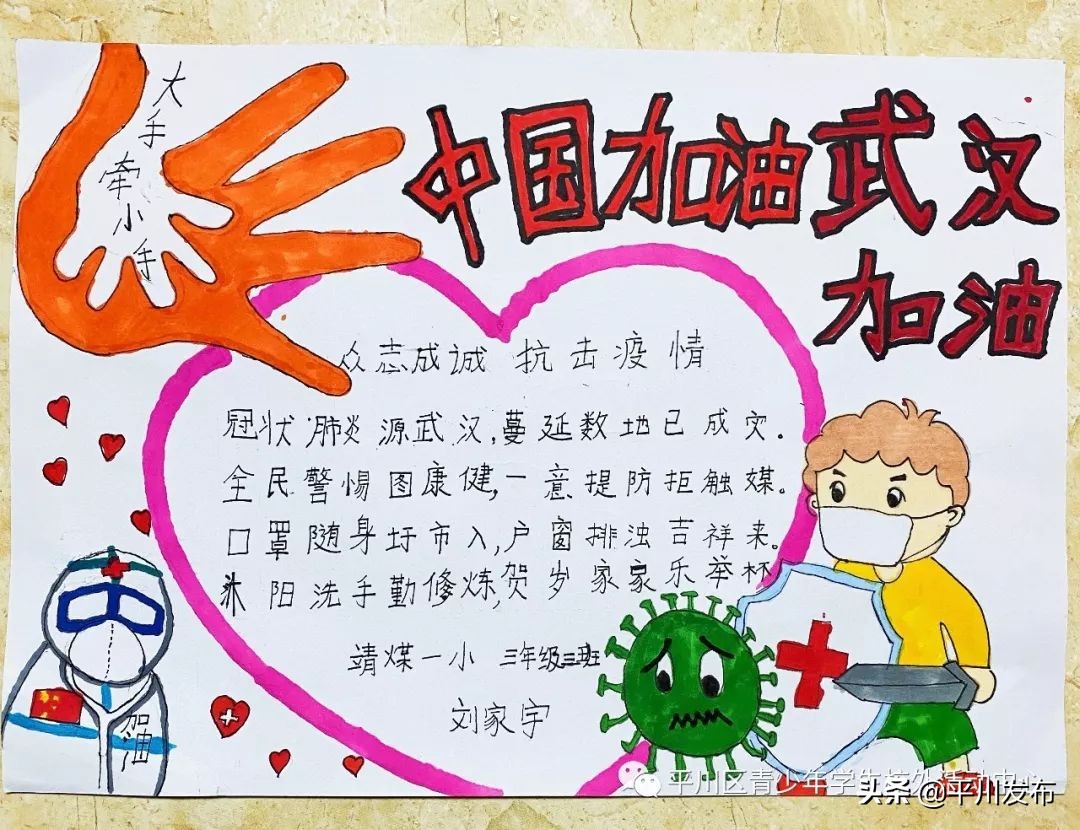 大手
牵小手
中国加油武汉
加油
众志成诚 抗击疫情
冠状肺炎源武汉,蔓延数地已成灾.
全民警惕图康健,一意提防拒触媒。
口罩随身圩市入,户窗排浊吉祥来。
沐阳洗手勤修炼,贺岁家家乐举杯
靖煤一小 三年级三班
刘家宇
加油
平川区青少年学生校外活动中心
头条 @平川发布